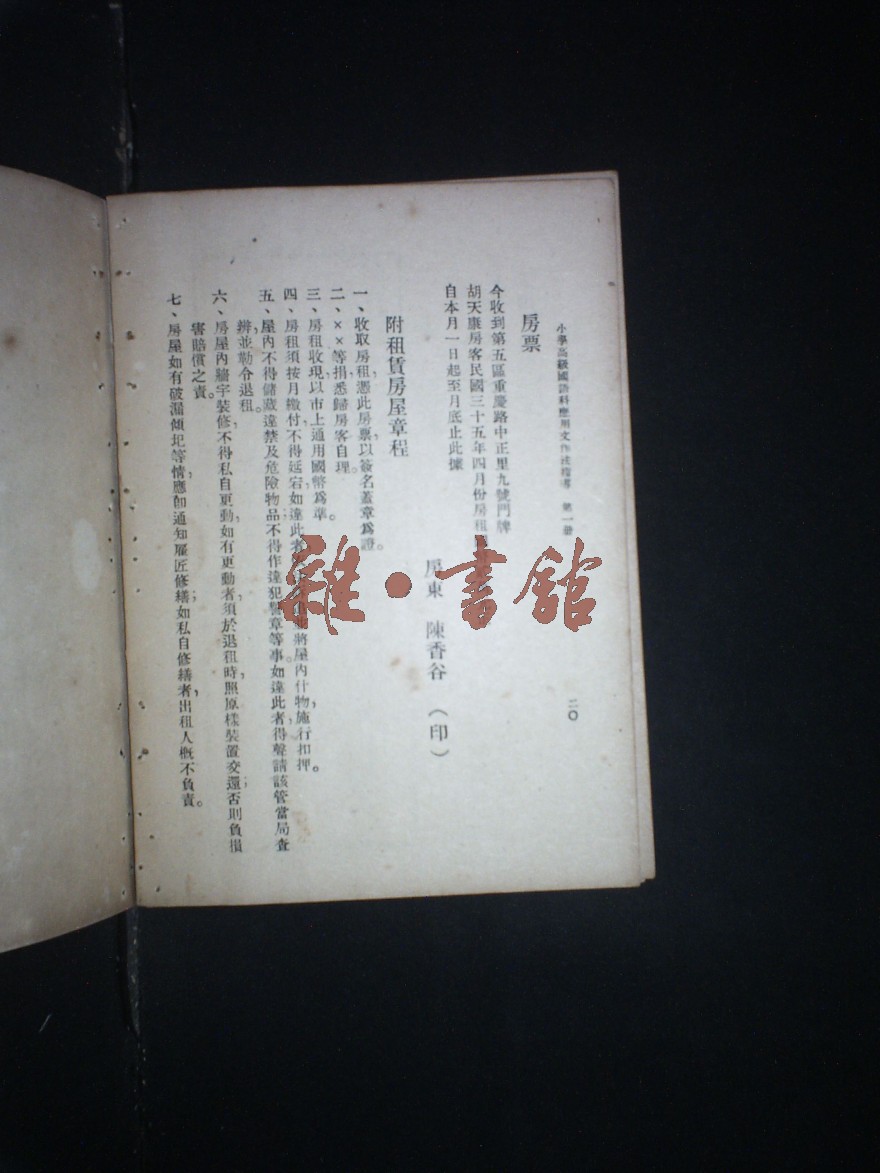 小學高級國語科應用文作法指導 第一册 二〇
房票
今收到第五區重慶路中正里九號門牌
胡天康房客民國三十五年四月份房租
自本月一日起至月底止此據
房東 陳香谷 (印)
附租賃房屋章程
一、收取房租,憑此房票,以簽名蓋章爲證。
二、××等捐,悉歸房客自理。
三、房租收現,以市上通用國幣爲準。
四、房租須按月繳付,不得延宕,如違此者將屋內什物,施行扣押。
五、屋內不得儲藏違禁及危險物品,不得作違犯警章等事。如違此者,得聲請該管當局查
辦,並勒令退租。
六、房屋內牆宇裝修,不得私自更動,如有更動者,須於退租時,照原樣裝置交還;否則負損
害賠償之責。
七、房屋如有破漏傾圯等情,應卽通知雇匠修繕,如私自修繕者,出租人概不負責。
雜·書館